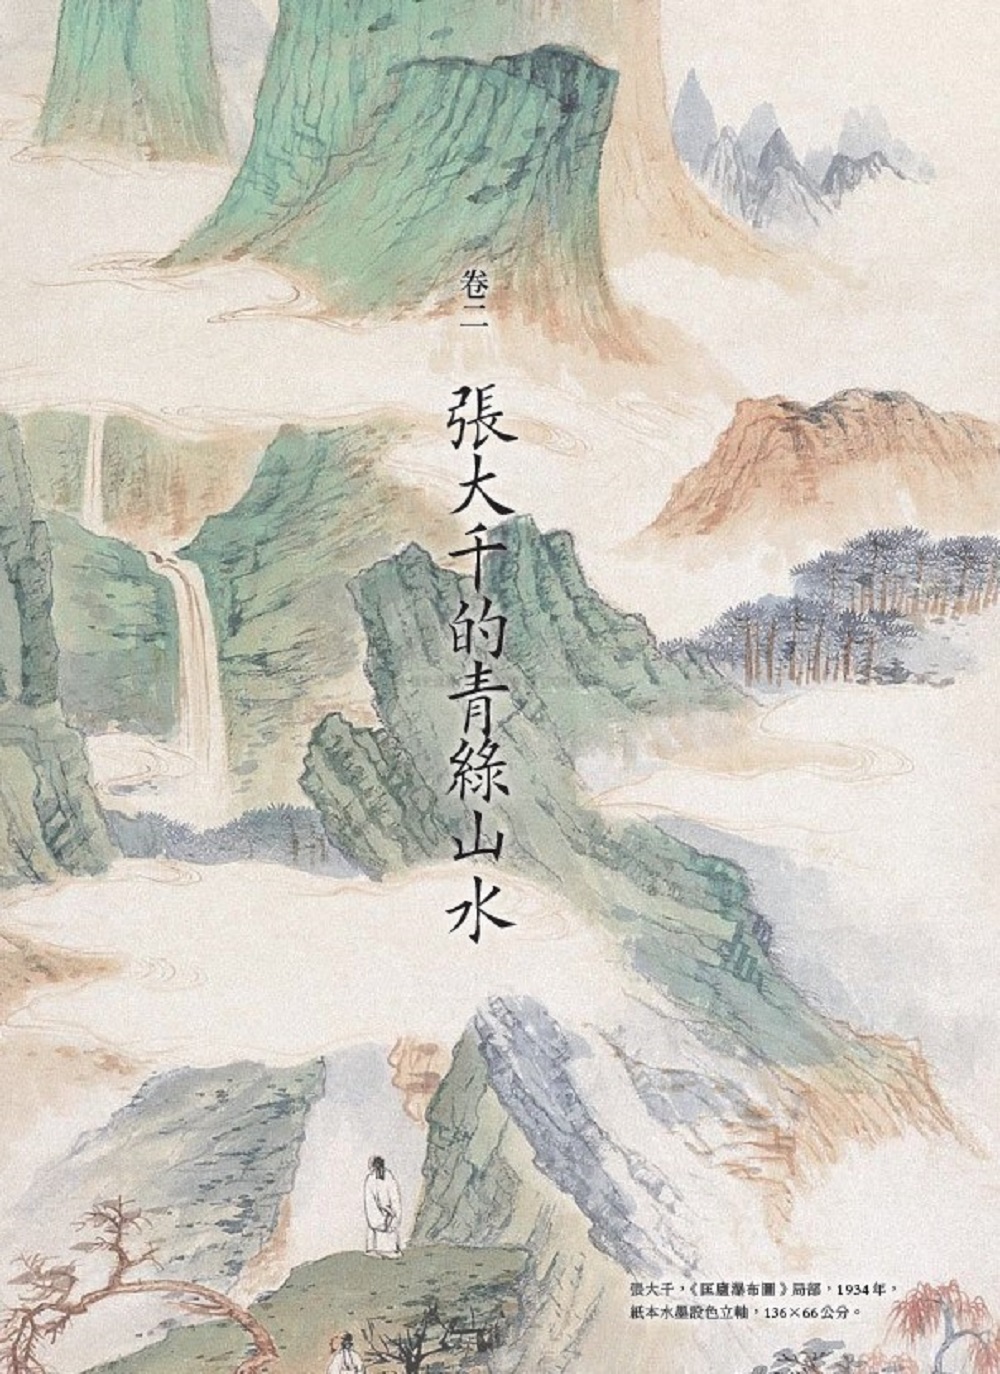 卷二
張大千的青綠山水
張大千，《匡廬瀑布圖》局部，1934年，
紙本水墨設色立軸，136×66公分。